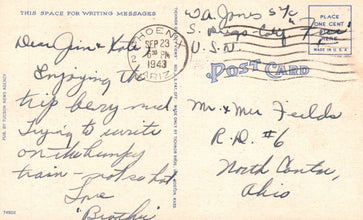 THIS SPACE FOR WRITING MESSAGES
Dear Jim & Kate,
Enjoying the
trip very much
Trying to write
on the bumpy
train - not so hot
Love
"Brother"
PUB. BY TUCSON NEWS AGENCY
74902
PHOENIX
SEP 23
PM
1943
ARIZ.
2
W.A. Jones S 2/c
S.
Free
U.S.N.
PLACE
ONE CENT
HERE
MADE IN U.S.A.
POST CARD
Mr. & Mrs Fields
R.D. #6
North Canton,
Ohio